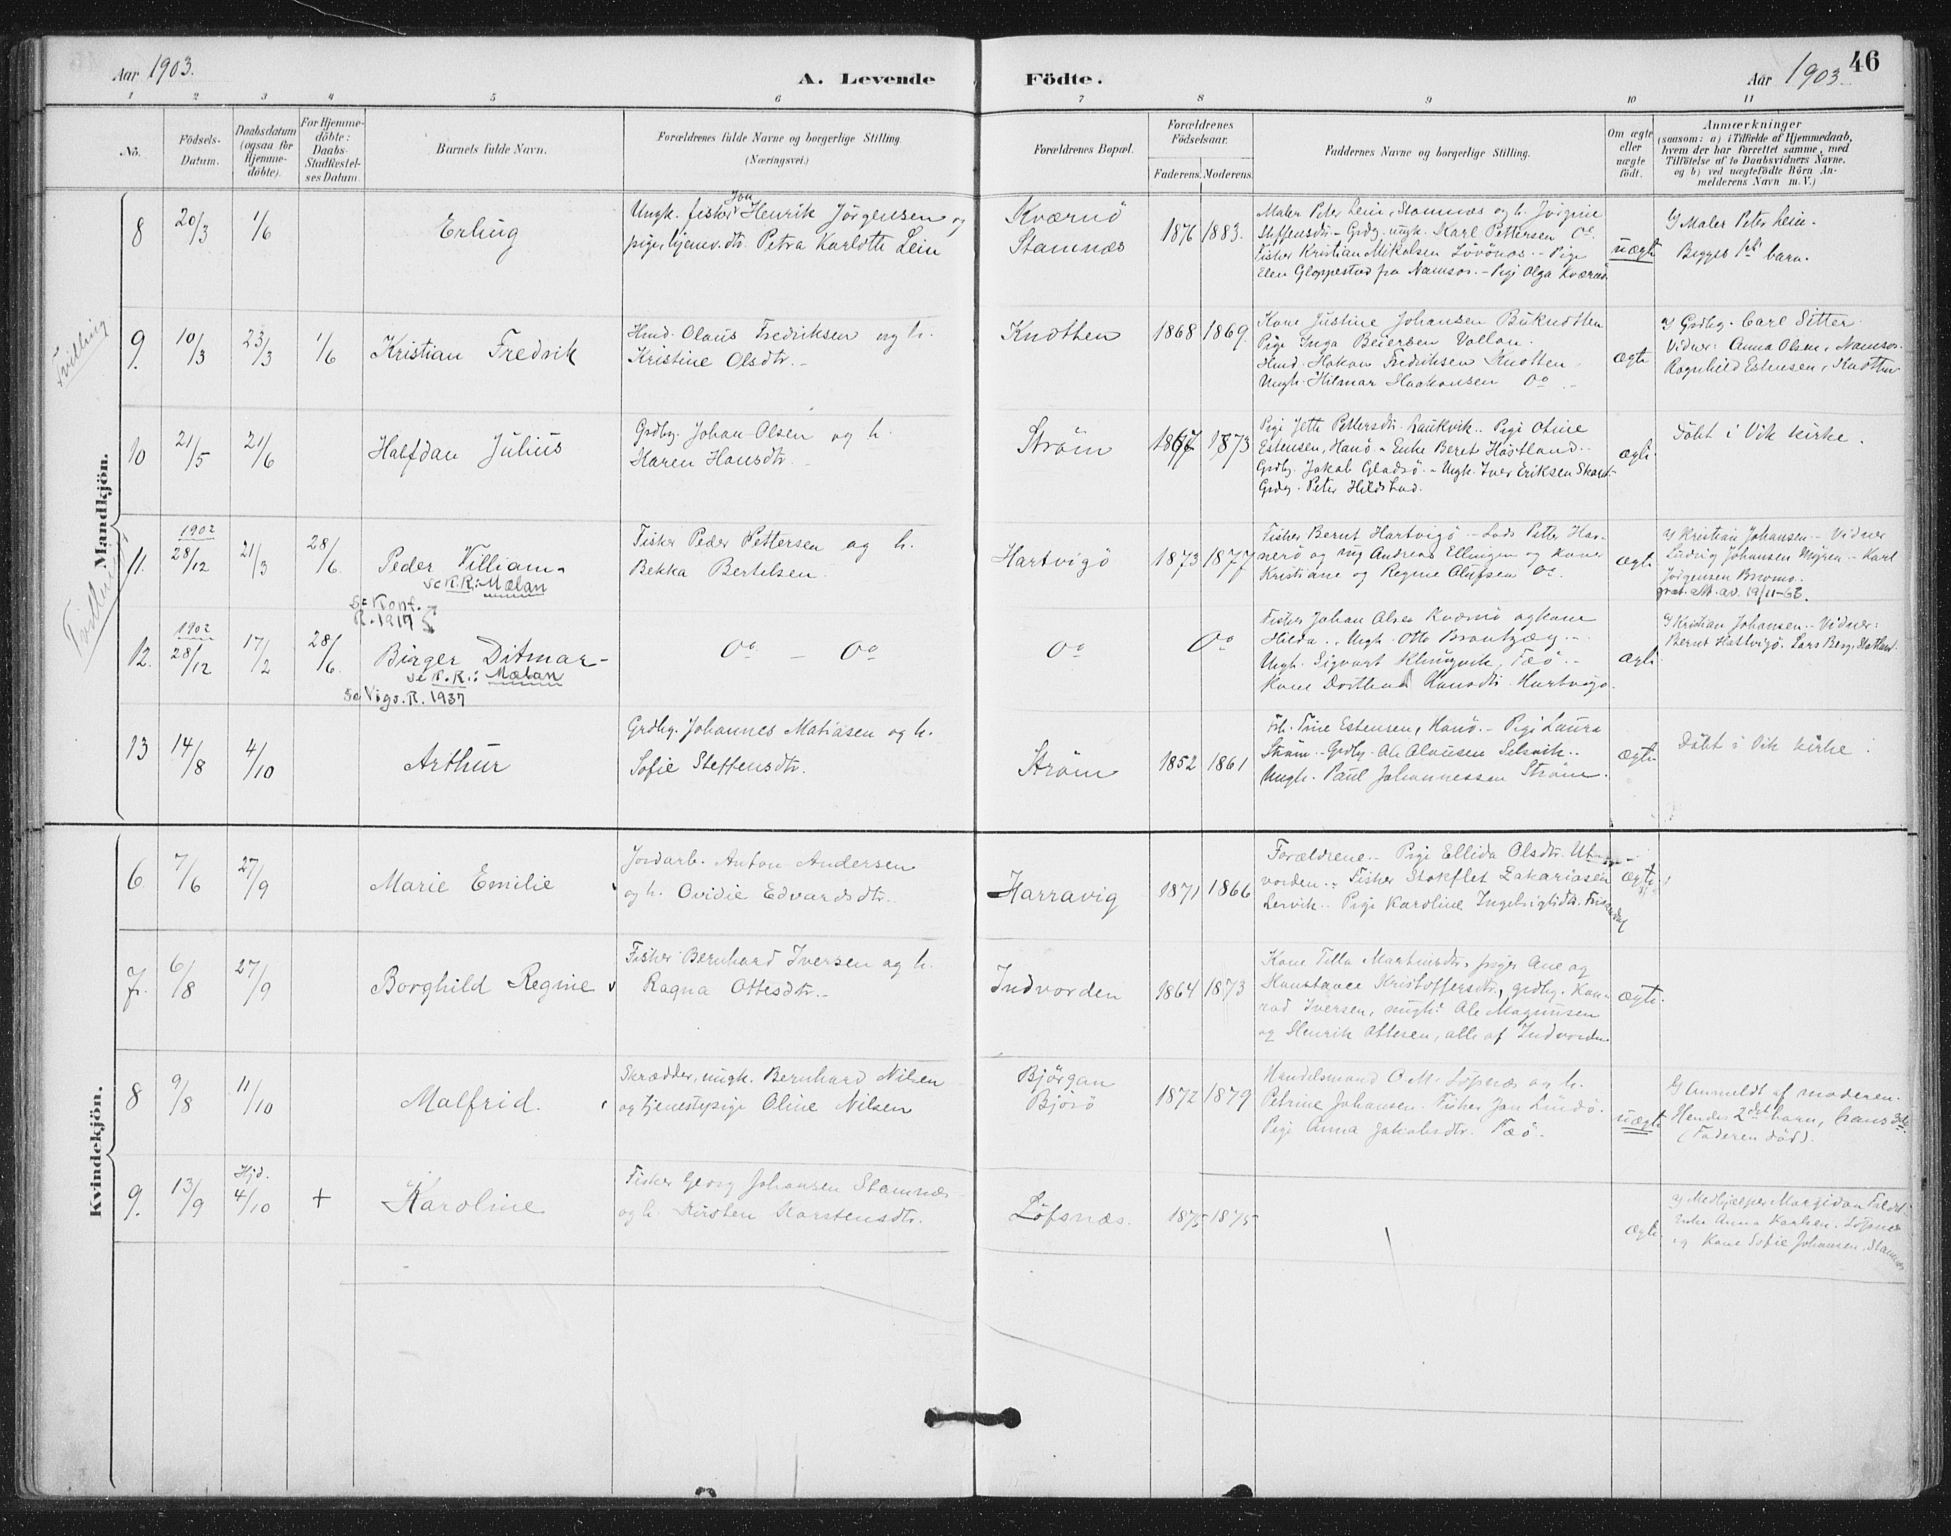 Aar 1903.
A. Levende Födte.
Aar 1903.
46
1 2 3 4 5 6 7 8 9 10 11
No.
Födsels-Datum.
Daabsdatum (ogsaa for Hjemmedöbte).
For Hjemmedöbte: Daabs-Stadfæstelses Datum.
Barnets fulde Navn.
Forældrenes fulde Navne og borgerlige Stilling (Næringsvei.)
Forældrenes Bopæl.
Forældrenes Födselsaar.
Faderens. Moderens.
Faddernes Navne og borgerlige Stilling.
Om ægte eller uægte födt.
Anmærkninger
(saasom: a) i Tilfælde af Hjemmedaab,
hvem der har forrettet samme, med
Tilföielse af to Daabsvidners Navne,
og b) ved uægtefödte Börn An-
melderens Navn m. V.)
Mandkjön.
8 20/3 1/6 Erling
Ungk. fisker Jon Henrik Jörgensen og
pige, hjemv. dtr. Petra Karlotte Lein
Kværnö
Stamnæs
1876 1883.
Maler Peter Lein, Stamnæs og h. Jörgine
Steffensdtr. - Grdbg. ungk. Karl Pettersen Oo.
Fisker Kristian Mikalsen Lövönes - Pige
Elen Gloppestad fra Namsos. - Pige Olga Kværnö
uægte
Maler Peter Lein.
Begges 1ste barn.
Tvilling
9. 10/3 23/3 1/6 Kristian Fredrik
Hmd. Olaus Fredriksen og h.
Kristine Olsdtr. -
Knotten
1868 1869.
Kone Justine Johansen Buknotten
Pige Inga Beiersen Vollan.
Hmd. Hakon Fredriksen Knotten.
Ungk. Hilmar Haakonsen Oo -
ægte
Grdbg. Carl Sitter.
Vidner: Anna Olsen, Namsos.
Ragnhild Estensen, Knotten
10 21/5 21/6 Halfdan Julius
Grdbg. Johan Olsen og h.
Karen Hansdtr.
Ström
1867 1873
Pige Jette Pettersdtr. Laukvik. Pige Oline
Estensen, Hanö - Enke Beret Høstland.
Grdbg. Jakob Gladsö. - Ungk. Iver Eriksen Skaret
Grdbg. Peter Hildstad.
ægte
Döbt i Vik kirke.
Tvillinger
11. 1902 28/12 21/3 28/6. Peder Villiam -
se P.R.: Mælan
Se Konf.
R. 1917
Fisker Peder Pettersen og h.
Bekka Bertelsen.
Hartvigö
1873 1877
Fisker Bernt Hartvigö - Lods Petter Har-
nerö og ung Andreas Ellingen og koner
Kristiane og Regine Olufsen Oo.
ægte
Kristian Johansen - Vidner
Ludvig Johansen Myren - Karl
Jörgensen Bromo.
12. 1902 28/12 17/2 28/6. Birger Ditmar -
se P.R.: Mælan
Se Vigs.R. 1937
Oo - Oo
Oo
Oo
Fisker Johan Olsen Kværnö og kone
Hilda. - Ungk. Otto Brantzæg -
Ungk. Sigvart Klungvik, Fæö. -
Kone Dorthea Hansdtr. Hartvigö.
ægte
Kristian Johansen - Vidner:
Bernt Hartvigö, Lars Berg, Statland.
13 14/8 4/10 Arthur
Grdbg. Johannes Matiasen og h.
Sofie Steffensdtr.
Ström
1852 1861
Frk. Tine Estensen, Hanö. - Pige Laura
Ström - Grdbg. Ole Olausen Selsvik.
Ungk. Paul Johannessen Ström.
ægte
Döbt i Vik kirke.
Kvindekjön.
6 7/6 27/9 Marie Emilie
Jordarb. Anton Andersen
og h. Ovidie Edvardsdtr.
Harravig
1871 1866
Forældrene - Pige Ellida Olsdtr. Ut-
vorden. - Fisker Stokflet Zakariasen
Lervik - Pige Karoline Ingebrigtsdtr.
ægte
7. 6/8 27/9 Borghild Regine
Fisker Bernhard Iversen og h.
Ragna Ottesdtr. -
Indvorden
1864 1873
Kone Tilla Martinsdtr. piger Ane og
Konstance Kristoffersdtr., grdbg. Kon-
rad Iversen, ungk. Ole Magnusen
og Henrik Ottesen, alle af Indvorden
ægte
8 9/8 11/10 Malfrid.
Skrædder, ungk. Bernhard Nilsen
og tjenestepige Oline Nilsen
Bjørgan
Bjørö
1872 1879
Handelsmand O. M. Löfsnæs og h.
Petrine Johansen. Fisker Jon Lundö.
Pige Anna Jakobsdtr. Fæö.
uægte
Anmeldt af moderen.
Hendes 2det barn, hans 3die.
(Faderen död).
9. 13/9 Hjd. 4/10 + Karoline
Fisker Georg Johansen Stamnæs
og h. Kirsten Karstensdtr.
Löfsnæs.
1875 1875
ægte
Medhjælper Margidan Faldet
Enke Anna Karlsen, Löfsnæs
og Kone Sofie Johansen, Stamnæs